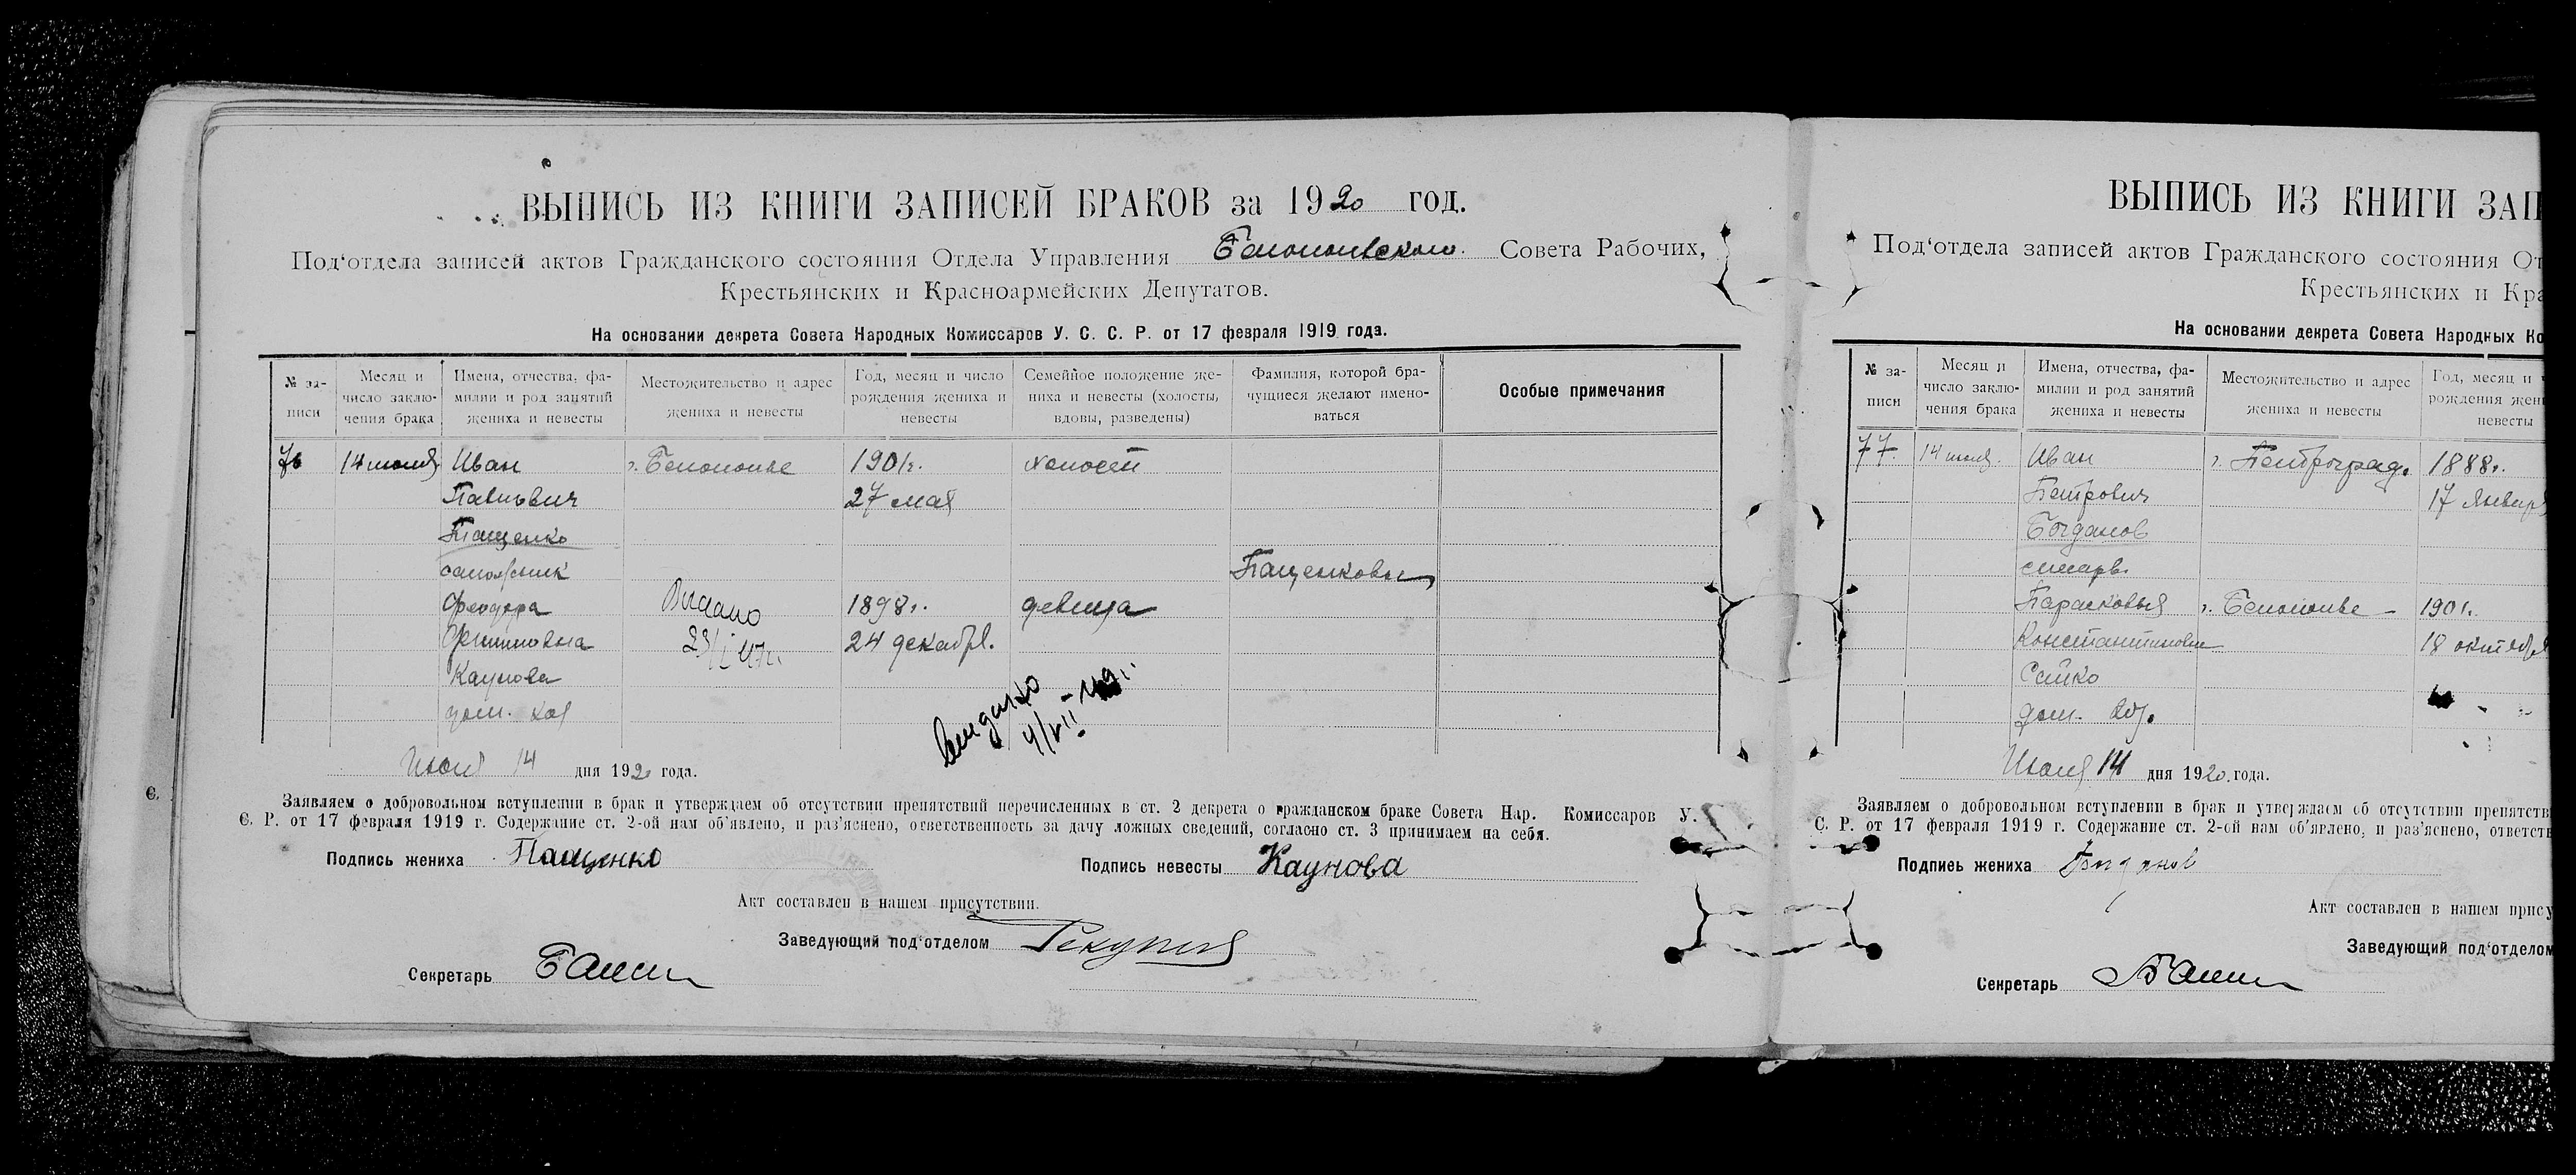 ВЫПИСЬ ИЗ КНИГИ ЗАПИСЕЙ БРАКОВ за 1920 год.
Под‘отдела записей актов Гражданского состояния Отдела Управления Белопольского Совета Рабочих,
Крестьянских и Красноармейских Депутатов.
На основании декрета Совета Народных Комиссаров У. С. С. Р. от 17 февраля 1919 года.
№ за-
писи
Месяц и
число заклю-
чения брака
Имена, отчества, фа-
милии и род занятий
жениха и невесты
Местожительство и адрес
жениха и невесты
Год, месяц и число
рождения жениха и
невесты
Семейное положение же-
ниха и невесты (холосты,
вдовы, разведены)
Фамилия, которой бра-
чущиеся желают имено-
ваться
Особые примечания
76 14 июля Иван г. Белополье 1901г. холост
Павлович 27 мая
Пащенко
сапожник Пащенковы
Феодора Выдано 1898г. девица
23/I 47г. 24 декабря.
Каунова
дом. хоз
Июля 14 дня 1920 года.
Заявляем о добровольном вступлении в брак и утверждаем об отсутствии препятствий перечисленных в ст. 2 декрета о гражданском браке Совета Нар. Комиссаров У.
С. Р. от 17 февраля 1919 г. Содержание ст. 2-ой нам об‘явлено, и раз‘яснено, ответственность за дачу ложных сведений, согласно ст. 3 принимаем на себя.
Подпись жениха Пащенко Подпись невесты Каунова
Акт составлен в нашем присутствии.
Заведующий под‘отделом
Секретарь
С.
ВЫПИСЬ ИЗ КНИГИ ЗАП
Под‘отдела записей актов Гражданского состояния От
Крестьянских и Кра
На основании декрета Совета Народных Ко
№ за-
писи
Месяц и
число заклю-
чения брака
Имена, отчества, фа-
милии и род занятий
жениха и невесты
Местожительство и адрес
жениха и невесты
Год, месяц и ч
рождения жени
невесты
77. 14 июля. Иван г. Петроград. 1888г.
Петрович 17 январ
Богданов
слесарь.
Парасковья г. Белополье 1901г.
Константиновна 18 октября
Сайко
дом. хоз.
Июля 14 дня 1920 года.
Заявляем о добровольном вступлении в брак и утверждаем об отсутствии препятств
С. Р. от 17 февраля 1919 г. Содержание ст. 2-ой нам об‘явлено, и раз‘яснено, ответств
Подпись жениха Богданов
Акт составлен в нашем прису
Заведующий под‘отделом
Секретарь